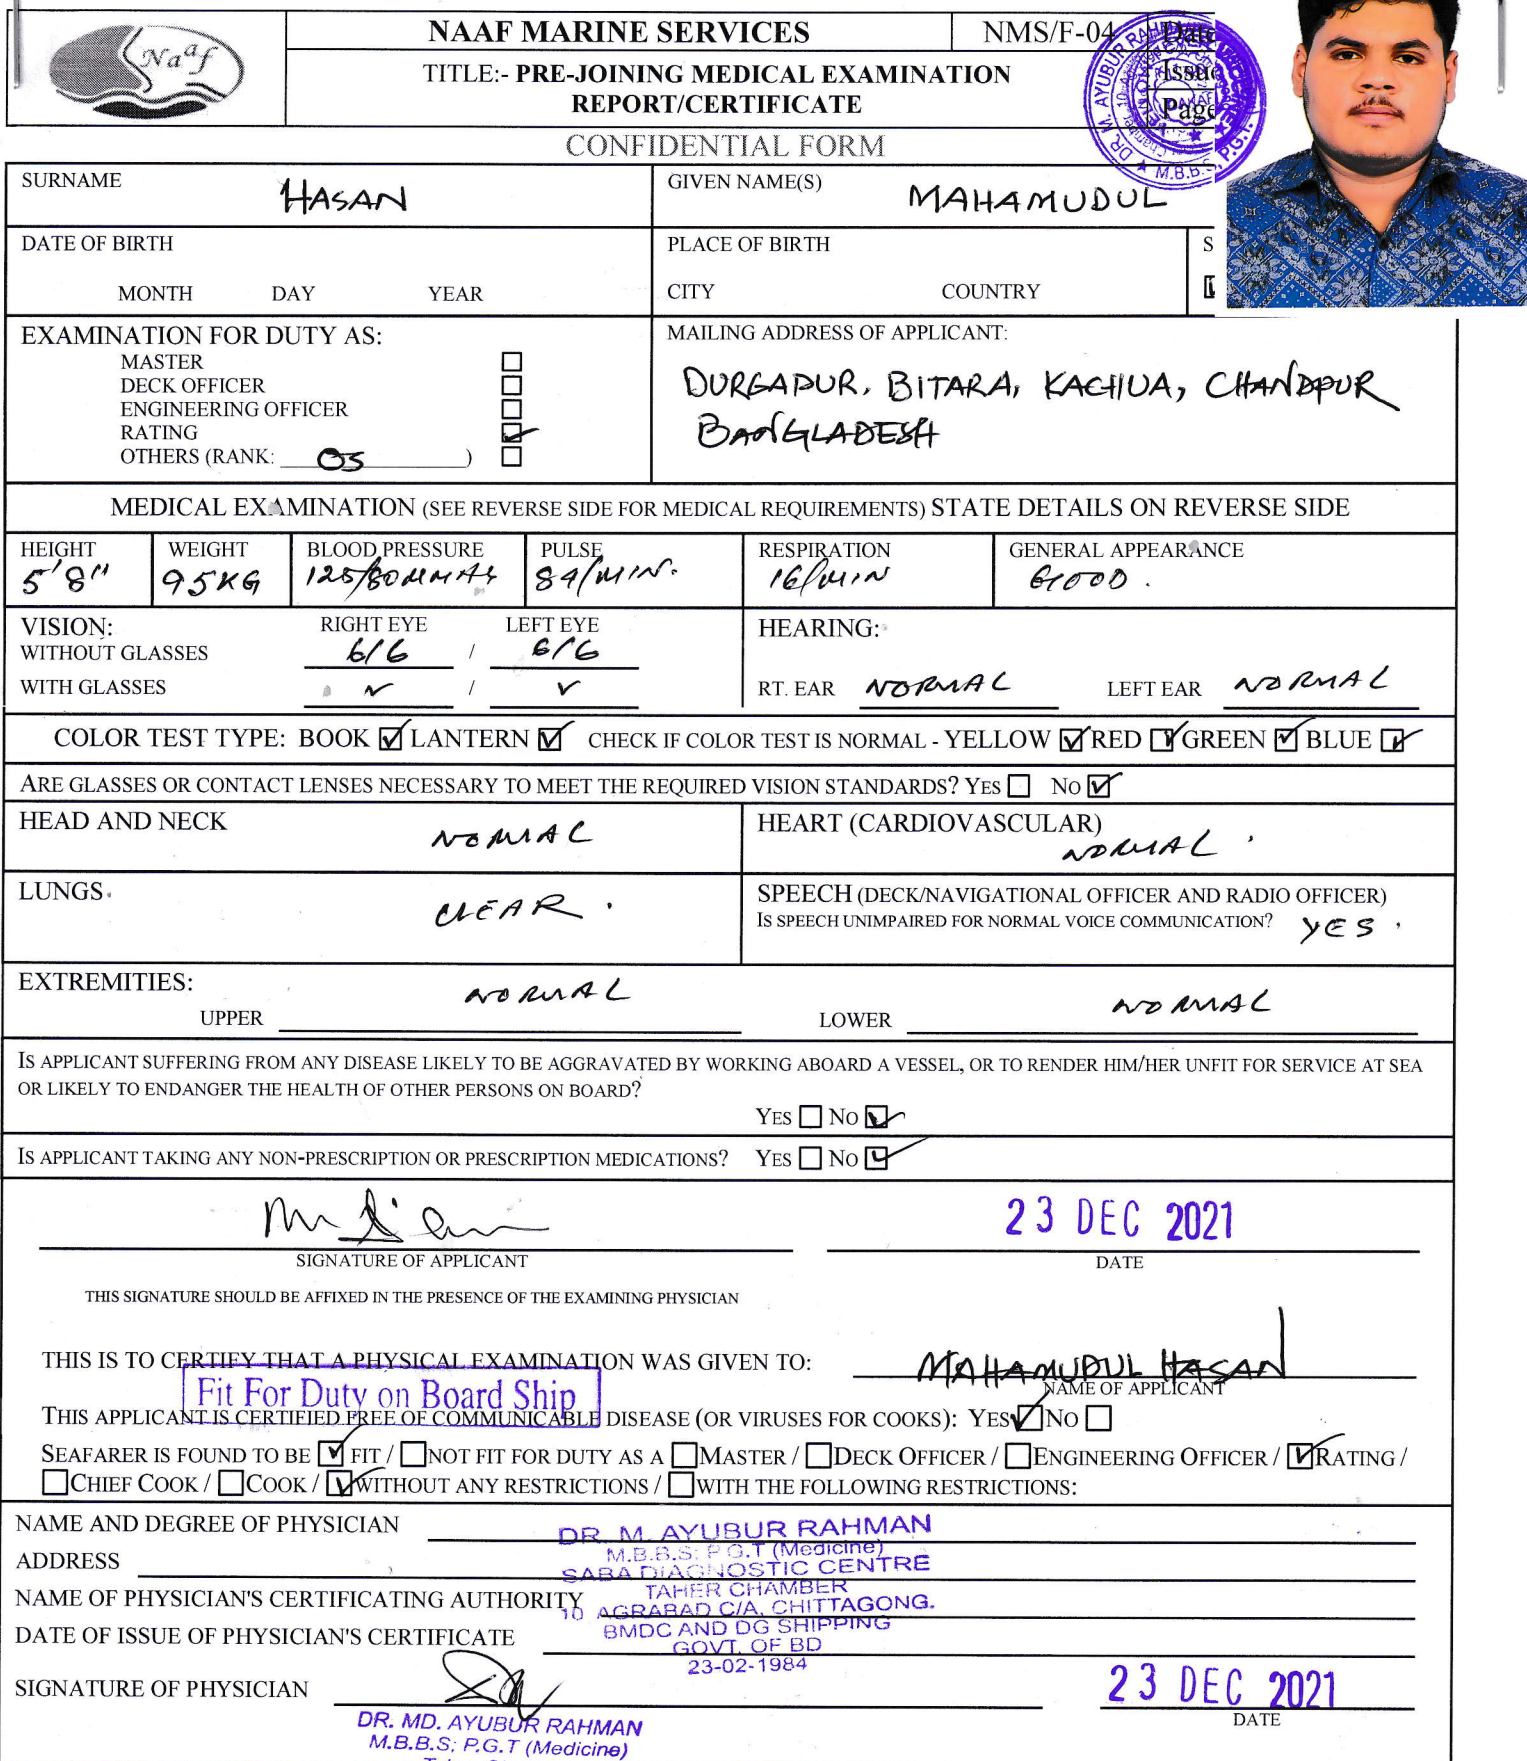 Naaf
NAAF MARINE SERVICES
NMS/F-04
Date
TITLE:- PRE-JOINING MEDICAL EXAMINATION
REPORT/CERTIFICATE
Issue
Page
DR. M. AYUBUR RAHMAN
M.B.B.S, P.G.T.
CONFIDENTIAL FORM
SURNAME HASAN
GIVEN NAME(S) MAHAMUDUL
DATE OF BIRTH
MONTH DAY YEAR
PLACE OF BIRTH
CITY COUNTRY
S
EXAMINATION FOR DUTY AS:
MASTER
DECK OFFICER
ENGINEERING OFFICER
RATING
OTHERS (RANK: OS )
MAILING ADDRESS OF APPLICANT:
DURGAPUR, BITARA, KACHUA, CHANDPUR
BANGLADESH
MEDICAL EXAMINATION (SEE REVERSE SIDE FOR MEDICAL REQUIREMENTS) STATE DETAILS ON REVERSE SIDE
HEIGHT WEIGHT BLOOD PRESSURE PULSE RESPIRATION GENERAL APPEARANCE
5'8" 95KG 125/80MMHG 84/MIN. 16/MIN GOOD.
VISION: RIGHT EYE LEFT EYE
WITHOUT GLASSES 6/6 / 6/6
WITH GLASSES /
HEARING:
RT. EAR NORMAL LEFT EAR NORMAL
COLOR TEST TYPE: BOOK LANTERN CHECK IF COLOR TEST IS NORMAL - YELLOW RED GREEN BLUE
ARE GLASSES OR CONTACT LENSES NECESSARY TO MEET THE REQUIRED VISION STANDARDS? YES NO
HEAD AND NECK NORMAL
HEART (CARDIOVASCULAR)
NORMAL.
LUNGS CLEAR.
SPEECH (DECK/NAVIGATIONAL OFFICER AND RADIO OFFICER)
IS SPEECH UNIMPAIRED FOR NORMAL VOICE COMMUNICATION? YES.
EXTREMITIES:
UPPER NORMAL LOWER NORMAL
IS APPLICANT SUFFERING FROM ANY DISEASE LIKELY TO BE AGGRAVATED BY WORKING ABOARD A VESSEL, OR TO RENDER HIM/HER UNFIT FOR SERVICE AT SEA
OR LIKELY TO ENDANGER THE HEALTH OF OTHER PERSONS ON BOARD?
YES NO
IS APPLICANT TAKING ANY NON-PRESCRIPTION OR PRESCRIPTION MEDICATIONS? YES NO
23 DEC 2021
SIGNATURE OF APPLICANT DATE
THIS SIGNATURE SHOULD BE AFFIXED IN THE PRESENCE OF THE EXAMINING PHYSICIAN
THIS IS TO CERTIFY THAT A PHYSICAL EXAMINATION WAS GIVEN TO: MAHAMUDUL HASAN
NAME OF APPLICANT
Fit For Duty on Board Ship
THIS APPLICANT IS CERTIFIED FREE OF COMMUNICABLE DISEASE (OR VIRUSES FOR COOKS): YES NO
SEAFARER IS FOUND TO BE FIT / NOT FIT FOR DUTY AS A MASTER / DECK OFFICER / ENGINEERING OFFICER / RATING /
CHIEF COOK / COOK / WITHOUT ANY RESTRICTIONS / WITH THE FOLLOWING RESTRICTIONS:
NAME AND DEGREE OF PHYSICIAN DR. M. AYUBUR RAHMAN
M.B.B.S; P.G.T (Medicine)
ADDRESS SABA DIAGNOSTIC CENTRE
TAHER CHAMBER
NAME OF PHYSICIAN'S CERTIFICATING AUTHORITY 10 AGRABAD C/A, CHITTAGONG.
BMDC AND DG SHIPPING
DATE OF ISSUE OF PHYSICIAN'S CERTIFICATE GOVT. OF BD
23-02-1984
SIGNATURE OF PHYSICIAN 23 DEC 2021
DATE
DR. MD. AYUBUR RAHMAN
M.B.B.S; P.G.T (Medicine)